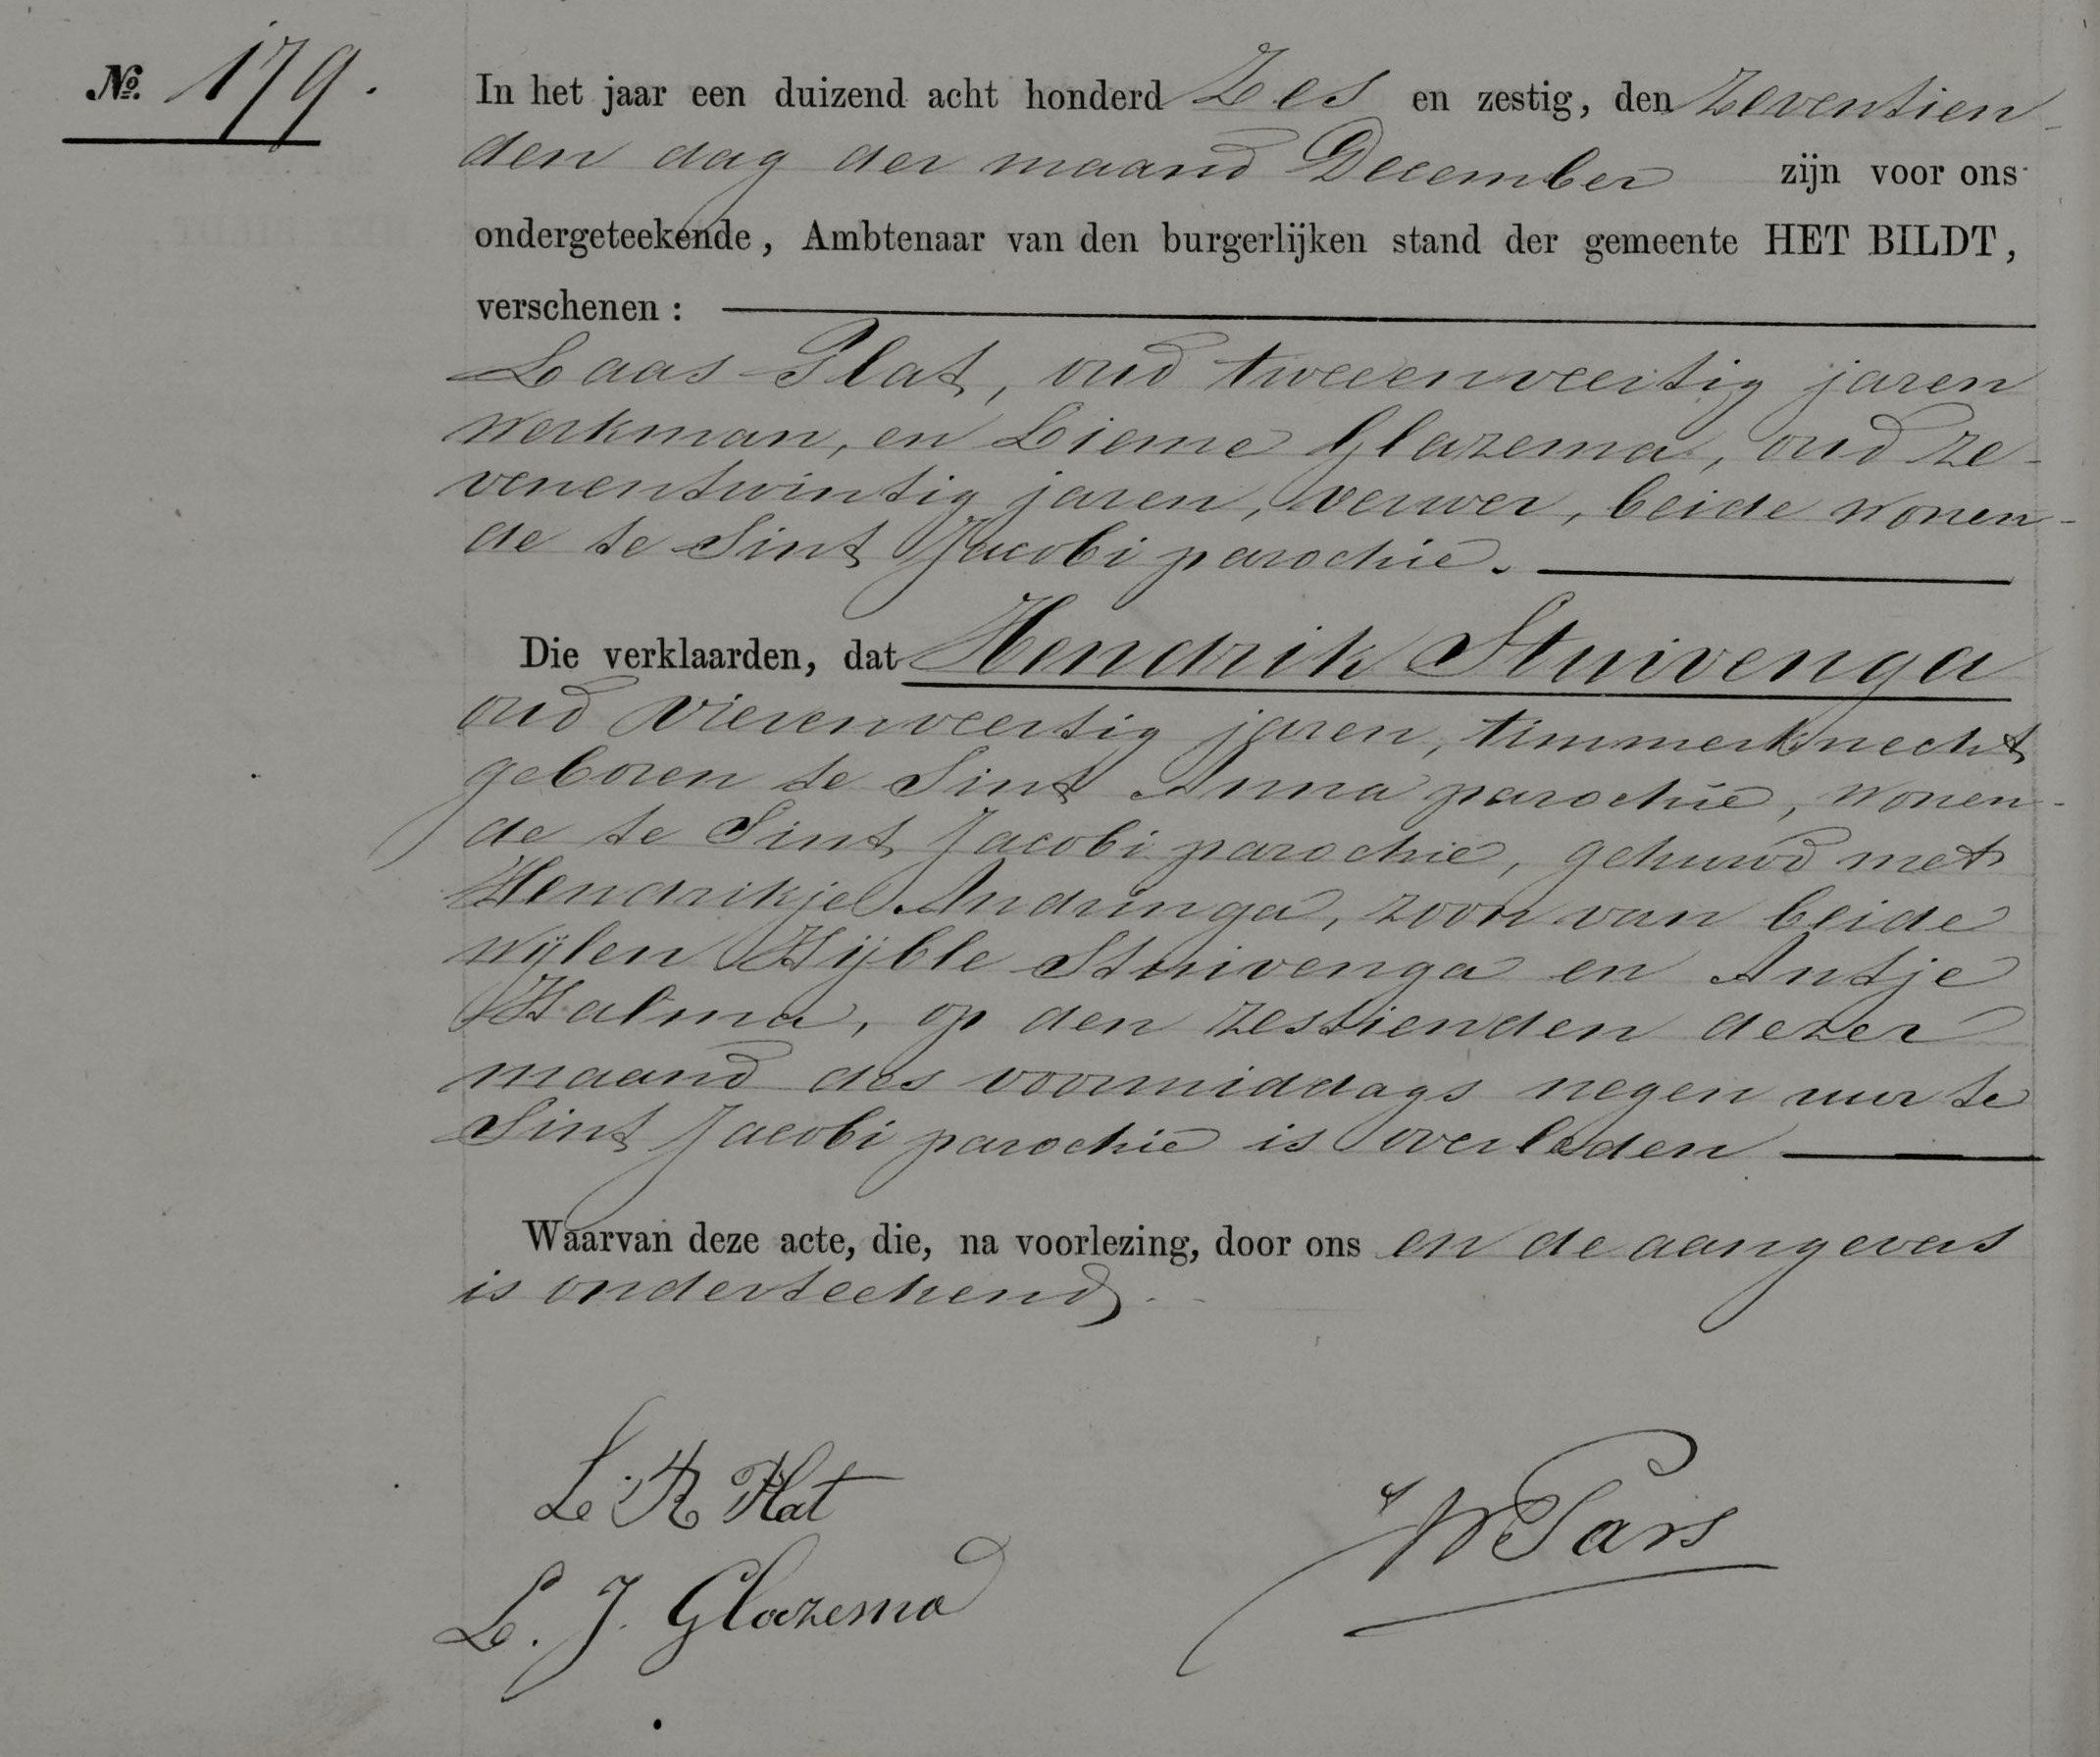 №. 179.
In het jaar een duizend acht honderd Zes en zestig, den Zeventien-
den dag der maand December zijn voor ons
ondergeteekende, Ambtenaar van den burgerlijken stand der gemeente HET BILDT,
verschenen :
Laas Plat, oud tweeenveertig jaren
werkman, en Lieme Glazema, oud ze-
venentwintig jaren, verwer, beide wonen-
de te Sint Jacobi parochie.
Die verklaarden, dat Hendrik Stuivenga
oud vierenveertig jaren, timmerknecht
geboren te Sint Anna parochie, wonen-
de te Sint Jacobi parochie, gehuwd met
Hendrikje Andringa, zoon van beide
wijlen Hijble Stuivenga en Antje
Halma, op den zestienden dezer
maand des voormiddags negen uur te
Sint Jacobi parochie is overleden
Waarvan deze acte, die, na voorlezing, door ons en de aangevers
is onderteekend.
L. R Plat
W Pars
L. J. Glazema